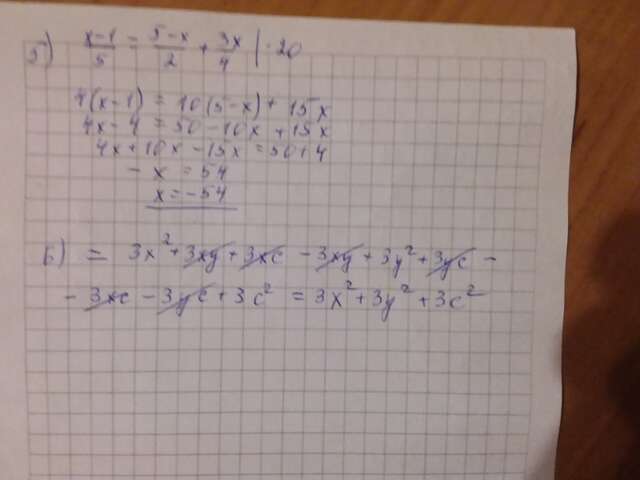 5) x-1/5 = 5-x/2 + 3x/4 | · 20
4(x-1) = 10(5-x) + 15x
4x-4 = 50-10x+15x
4x+10x-15x = 50+4
-x = 54
x = -54
6) = 3x²+3xy+3xc -3xy+3y²+3yc -
-3xc -3yc+3c² = 3x²+3y²+3c²